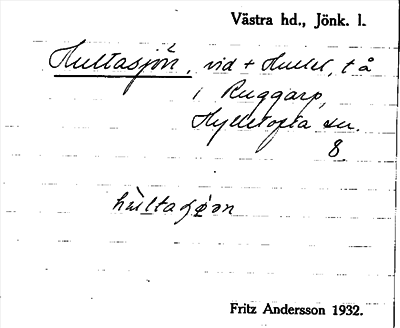 Västra hd., Jönk. l.
Hultasjön, vid + Hultet, t å
i Ruggarp,
Hylletofta sn.
8.
hùltaʃøən
Fritz Andersson 1932.